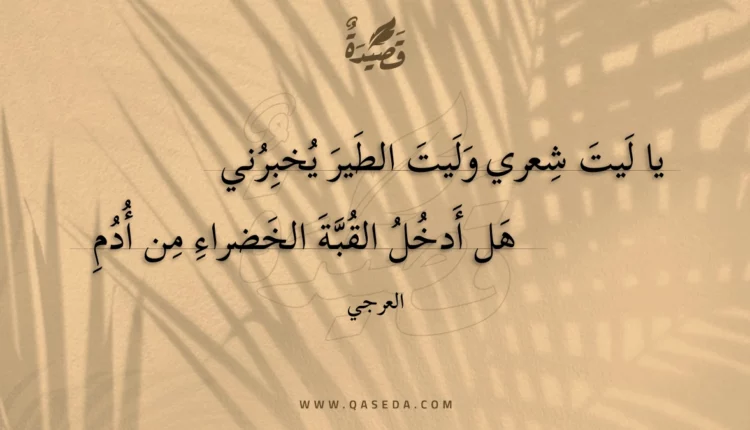 قَصِيدَةٌ
يا لَيتَ شِعري وَلَيتَ الطَيرَ يُخبِرُني
هَل أَدخُلُ القُبَّةَ الخَضراءِ مِن أُدُمِ
العرجي
WWW.QASEDA.COM